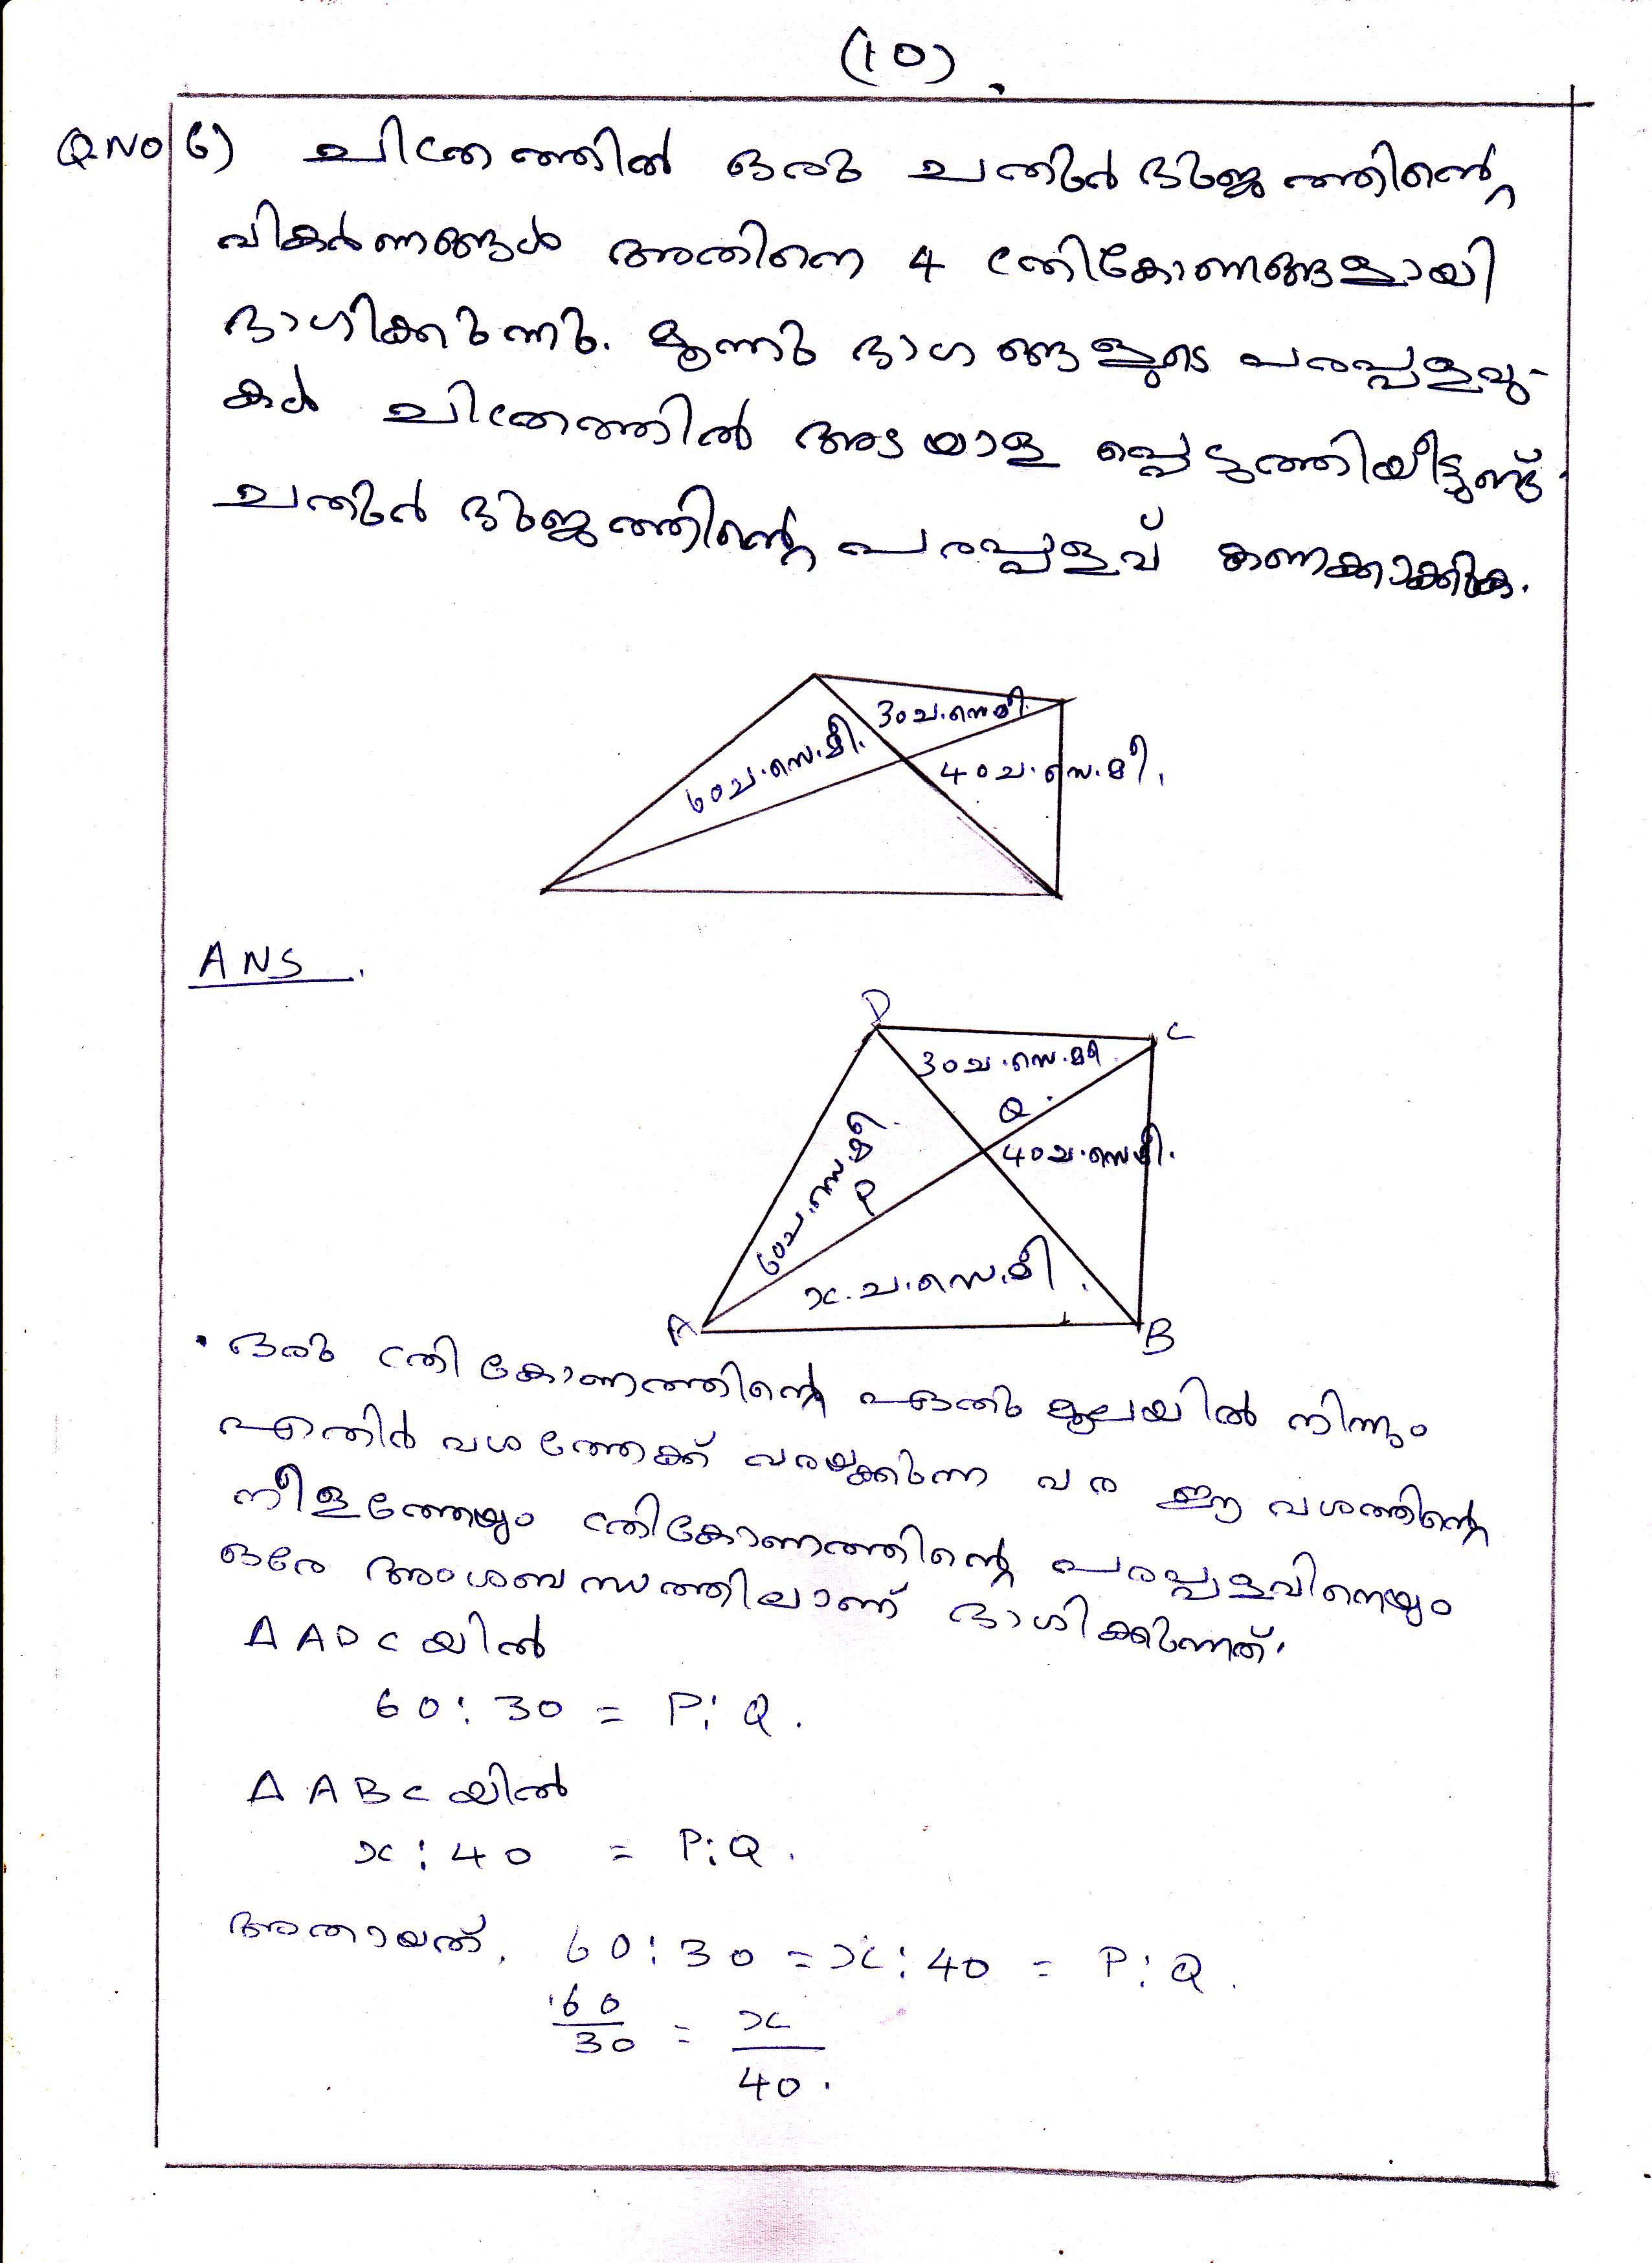 (10).
Q.NO 6) ചിത്രത്തിൽ ഒരു ചതുർഭുജത്തിന്റെ
വികർണങ്ങൾ അതിനെ 4 ത്രികോണങ്ങളായി
ഭാഗിക്കുന്നു. മൂന്നു ഭാഗങ്ങളുടെ പരപ്പളവു-
കൾ ചിത്രത്തിൽ അടയാളപ്പെടുത്തിയീട്ടുണ്ട്.
ചതുർഭുജത്തിന്റെ പരപ്പളവ് കണക്കാക്കുക.
30ച.സെ.മീ.
60ച.സെ.മീ.
40ച.സെ.മീ.
ANS.
D
C
30ച.സെ.മീ.
Q
40ച.സെ.മീ.
60ച.സെ.മീ
P
x.ച.സെ.മീ.
A
B
• ഒരു ത്രികോണത്തിന്റെ ഏതു മൂലയിൽ നിന്നും
എതിർ വശത്തേക്ക് വരയ്ക്കുന്ന വര ഈ വശത്തിന്റെ
നീളത്തേയും ത്രികോണത്തിന്റെ പരപ്പളവിനെയും
ഒരേ അംശബന്ധത്തിലാണ് ഭാഗിക്കുന്നത്.
Δ ADC യിൽ
60 : 30 = P : Q.
Δ ABC യിൽ
x : 40 = P : Q.
അതായത്, 60 : 30 = x : 40 = P : Q.
60/30 = x/40.